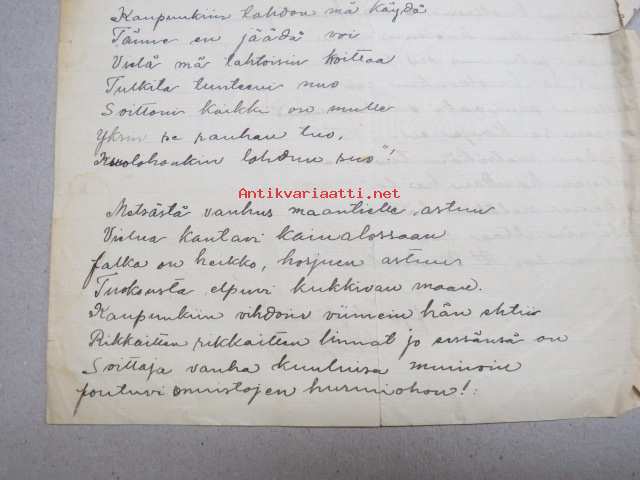 Kaupunkiin tahdon mä käydä
Tänne en jäädä voi
Vielä mä tahtoisin koittaa
Tulkita tunteeni nuo
Soittoni kaikki on mulle
Yksin se rauhan tuo,
lohdun suo"!
Antikvariaatti.net
Metsästä vanhus maantielle astuu
Viulua kantavi kainalossaan
Jalka on heikko, horjuen astuu
Tuoksusta elpuvi kukkivan maan.
Kaupunkiin vihdoin viimein hän ehtii
Rikkaitten rikkaitten linnat jo eessänsä on
Soittaja vanha kuuluisa muinoin
joutuvi muistojen hurmiohon!: